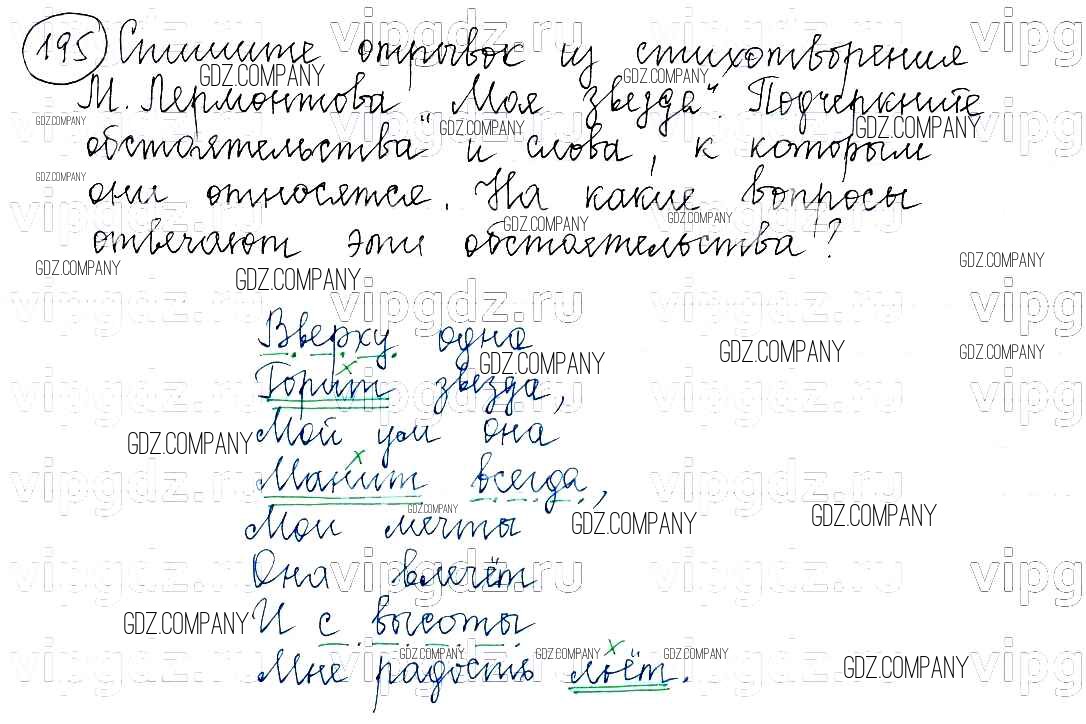 195 Спишите отрывок из стихотворения
М. Лермонтова "Моя звезда". Подчеркните
обстоятельства и слова, к которым
они относятся. На какие вопросы
отвечают эти обстоятельства?
Вверху одна
Горит звезда,
Мой ум она
Манит всегда,
Мои мечты
Она влечёт
И с высоты
Мне радость льёт.